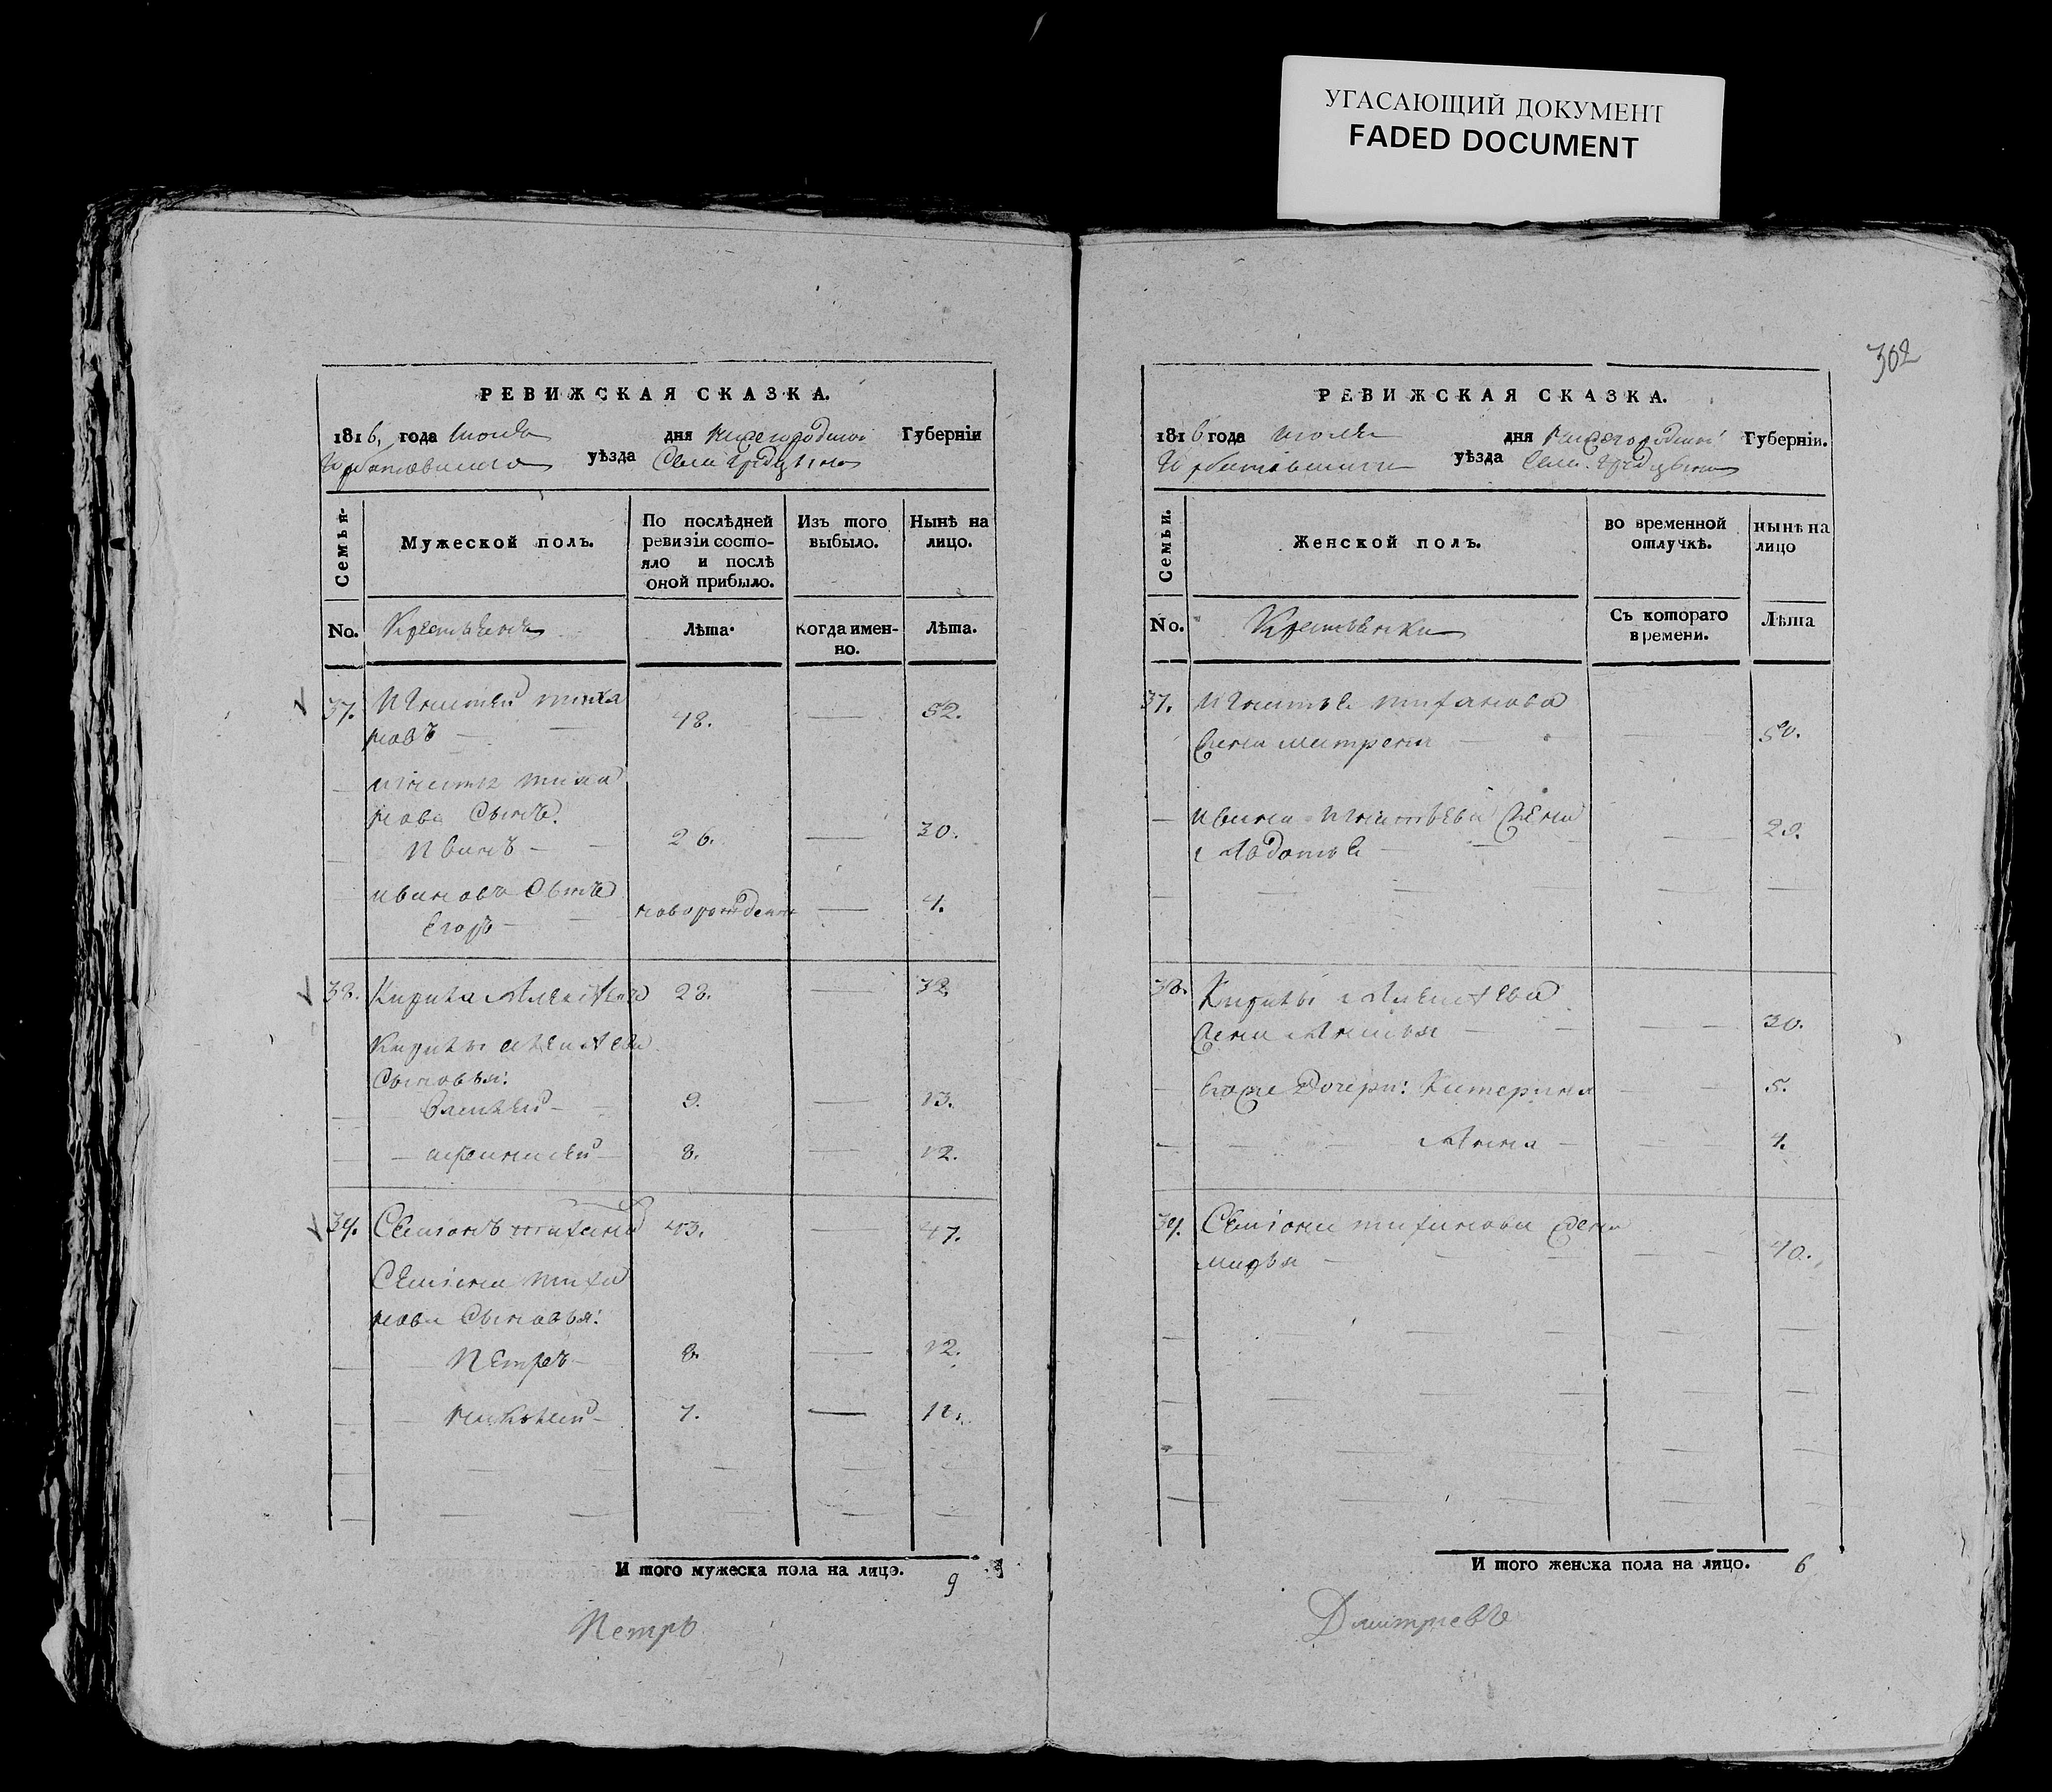 УГАСАЮЩИЙ ДОКУМЕНТ
FADED DOCUMENT
РЕВИЖСКАЯ СКАЗКА.
1816, года июля дня нижегородской Губерніи
Горбатовскаго уѣзда Села
Семьи.
Мужеской полъ.
По послѣдней ревизіи состо-
яло и послѣ
оной прибыло.
Изъ того
выбыло.
Нынѣ на
лицо.
No.
Лѣта.
когда имен-
но.
Лѣта.
37. Игнатей тиха
новъ 48. 52.
игнатья тиха
нова Сынъ:
Иванъ 26. 30.
ивановъ Сынъ
Егоръ новорожденъ 4.
38. Кирила Алексѣевъ 28. 32.
Кирилы алексѣева
Сыновья:
9. 13.
афанасей 8. 12.
39. Семіонъ тихановъ 43. 47.
Семіона тиха
нова Сыновья:
Петръ 8. 12.
николай 7. 11.
И того мужеска пола на лицо. 9
Петръ
302
РЕВИЖСКАЯ СКАЗКА.
1816 года июля дня нижегородской Губерніи.
Горбатовскаго уѣзда Села
Семьи.
Женской полъ.
во временной
отлучкѣ.
нынѣ на
лицо
No.
Крестьянки
Съ котораго
времени.
Лѣта
37. Игнатья тиханова
жена матрена 50.
ивана игнатьева жена
Авдотья 29.
38. Кирилы Алексѣева
жена 30.
Егоже Дочери: Катерина 5.
Анна 4.
39. Семіона тиханова жена
марья 40.
И того женска пола на лицо. 6
Дмитріевъ